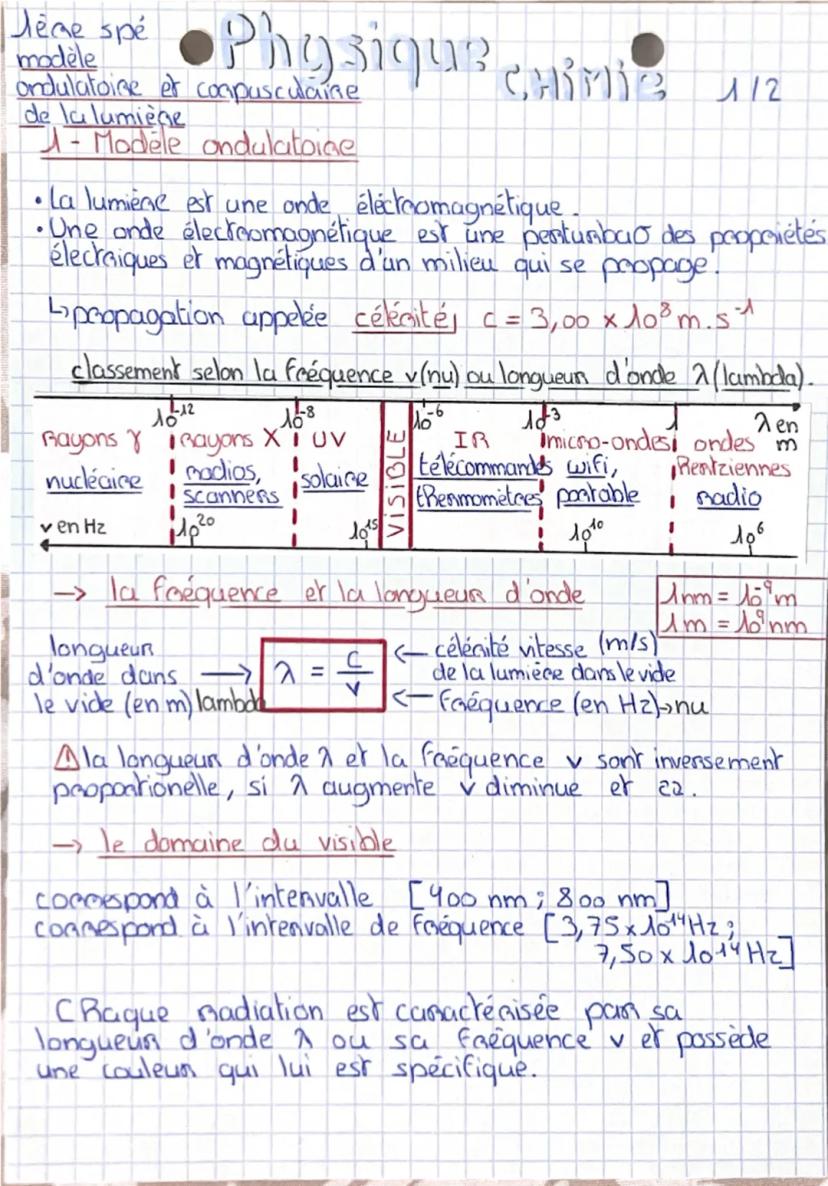 1ère spé
modèle
ondulatoire et corpusculaire
de la lumière
Physique
CHIMIE
1/2
1 - Modèle ondulatoire
• La lumière est une onde éléctromagnétique.
• Une onde électromagnétique est une perturbaO des propriétés
électriques et magnétiques d'un milieu qui se propage.
↳ propagation appelée célérité, c = 3,00 × 10⁸ m.s⁻¹
classement selon la fréquence ν(nu) ou longueur d'onde λ(lambda).
10⁻¹² 10⁻⁸ 10⁻⁶ 10⁻³ 1 λ en
m
Rayons γ Rayons X UV VISIBLE IR micro-ondes ondes
Hertziennes
nucléaire radios, solaire télécommandes wifi, radio
scanners thermomètres portable
ν en Hz 10²⁰ 10¹⁵ 10¹⁰ 10⁶
→ la fréquence et la longueur d'onde
1nm = 10⁻⁹m
1m = 10⁹nm
longueur
d'onde dans →
le vide (en m) lambda
λ = c/ν
← célérité vitesse (m/s)
de la lumière dans le vide
← fréquence (en Hz)→nu
⚠ la longueur d'onde λ et la fréquence ν sont inversement
proportionelle, si λ augmente ν diminue et
→ le domaine du visible
correspond à l'intervalle [400 nm ; 800 nm]
correspond à l'intervalle de fréquence [3,75×10¹⁴Hz ;
7,50 × 10¹⁴ Hz]
Chaque radiation est caractérisée par sa
longueur d'onde λ ou sa fréquence ν et possède
une couleur qui lui est spécifique.